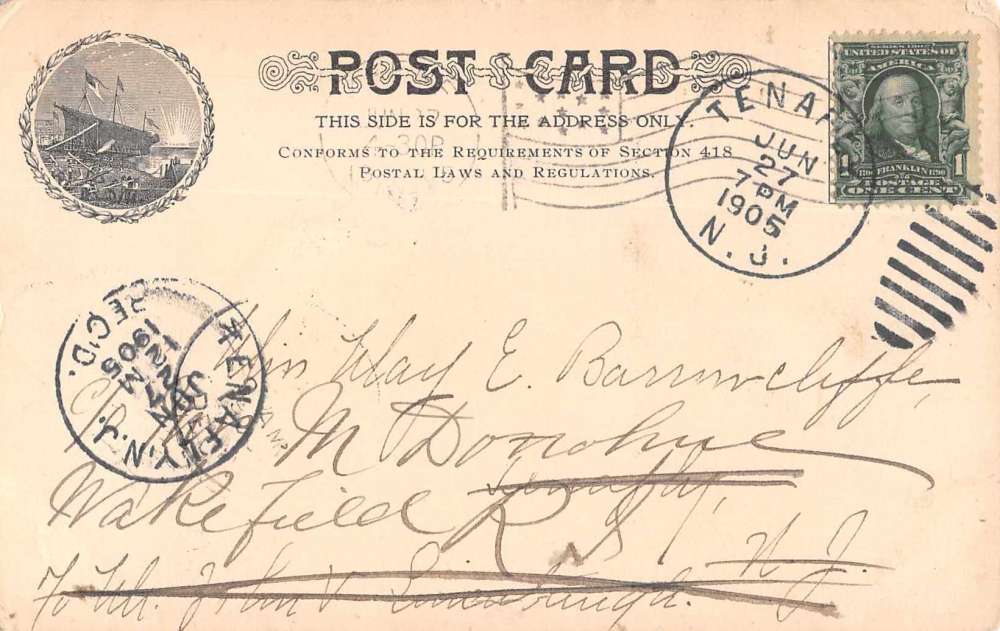 POST CARD
THIS SIDE IS FOR THE ADDRESS ONLY.
CONFORMS TO THE REQUIREMENTS OF SECTION 418
POSTAL LAWS AND REGULATIONS.
TENAF
JUN
27
7 PM
1905
N. J.
SERIES 1902
UNITED STATES OF
AMERICA
1 FRANKLIN 1
POSTAGE
ONE CENT
30P
TENAFLY, N.J.
JUN
27
1905
REC'D.
Miss May E. Barrowcliffe,
M Donohue
Tenafly,
Wakefield R I
N. J.